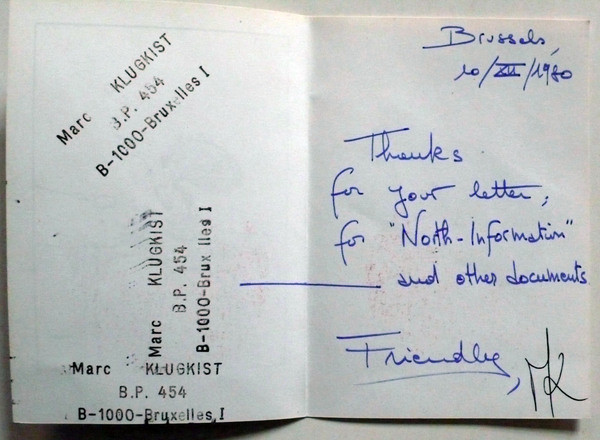 Marc KLUGKIST
B.P. 454
B-1000-Bruxelles I
Marc KLUGKIST
B.P. 454
B-1000-Brux lles I
Marc KLUGKIST
B.P. 454
B-1000-Bruxelles, I
Brussels,
10/XII/1980
Thanks
for your letter,
for "North-Information"
and other documents
Friendly,
MK